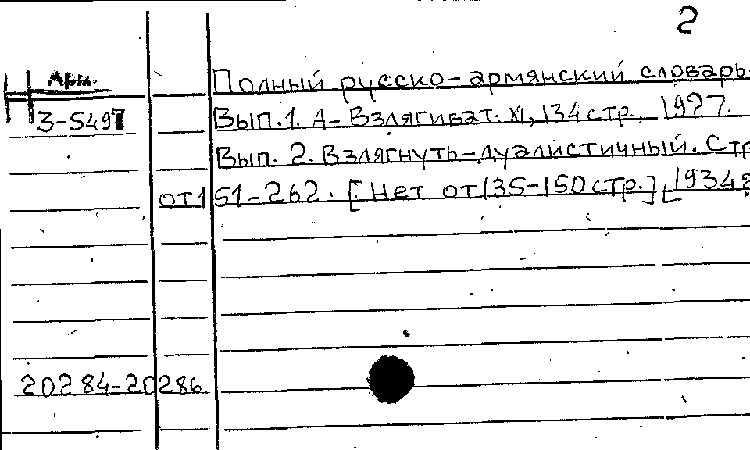 2
Арм.
Полный русско-армянский словарь
З-5497
Вып.1. А-Взлягиват. XI, 134 стр. 1927.
Вып. 2. Взлягнуть-дуалистичный. Стр
от 151-262. [Нет от 135-150 стр.] [1934
20284-20286